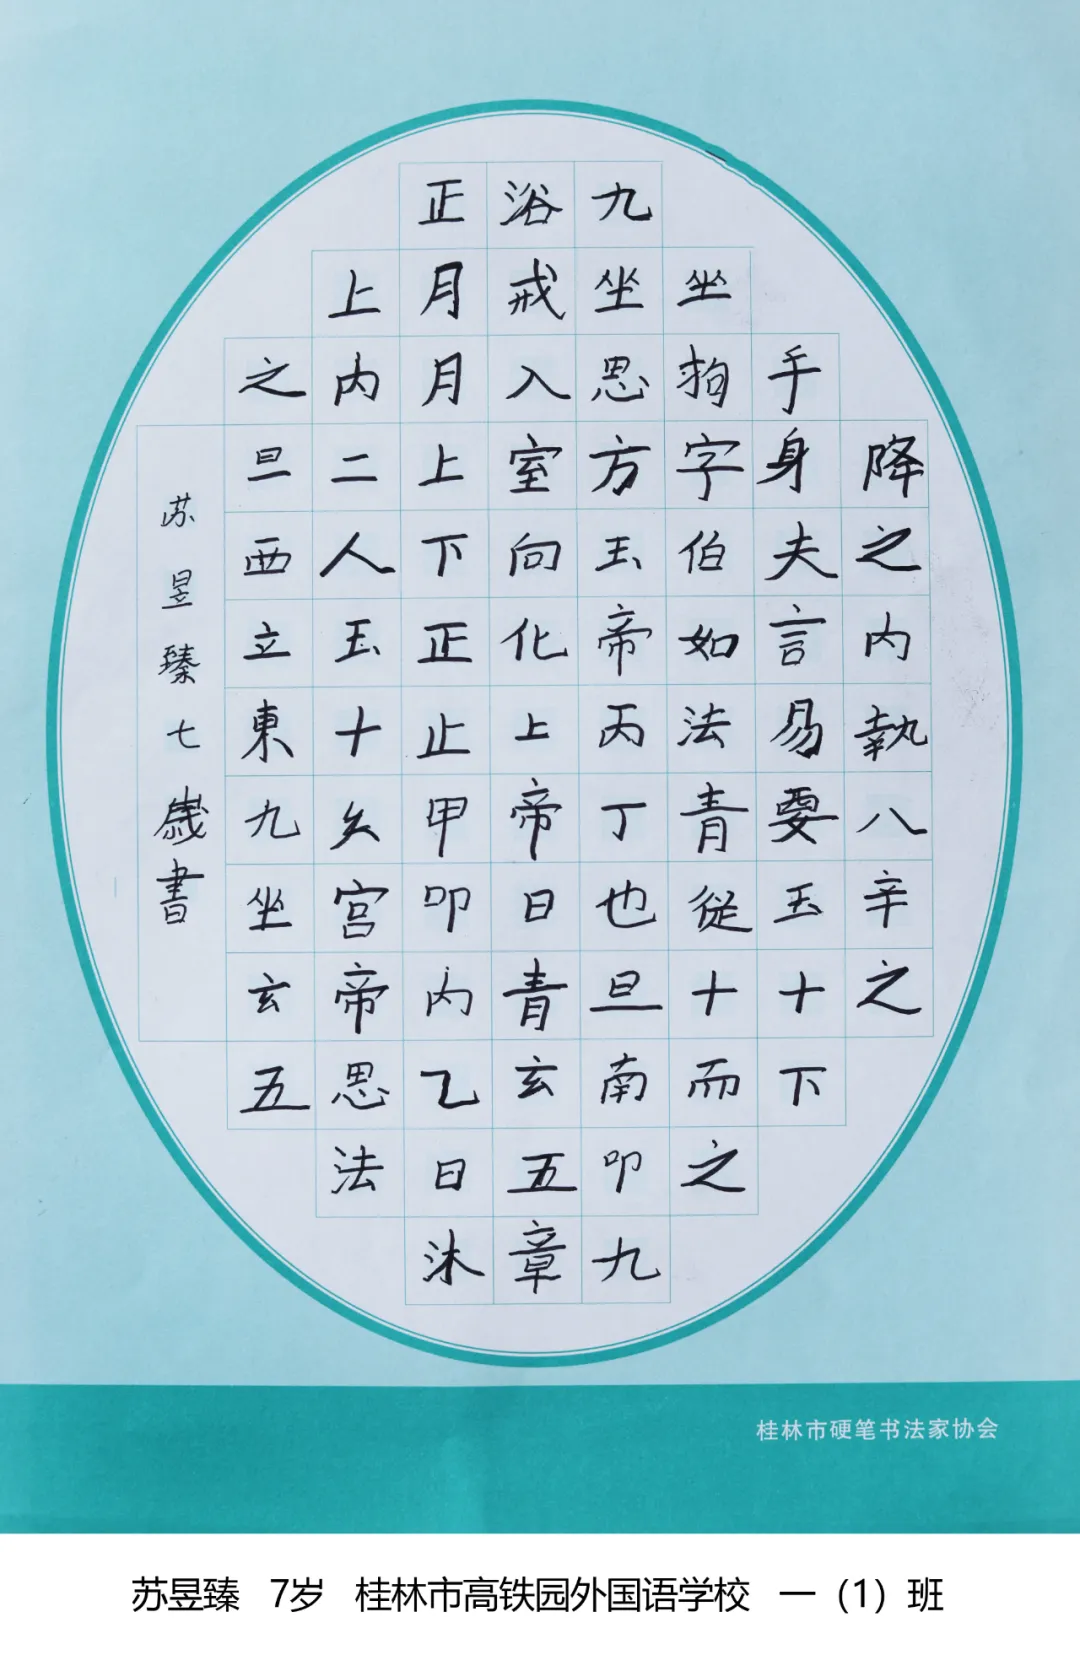 降之内執八辛之
手身夫言易要玉十下
坐狗字伯如法青從十而之
九坐思方玉帝丙丁也旦南叩九
浴戒入室向化上帝日青玄五章
正月月上下正止甲叩内乙日沐
上内二人玉十亥宫帝思法
之旦西立東九坐玄五
苏昱臻七歲書
桂林市硬笔书法家协会
苏昱臻 7岁 桂林市高铁园外国语学校 一（1）班